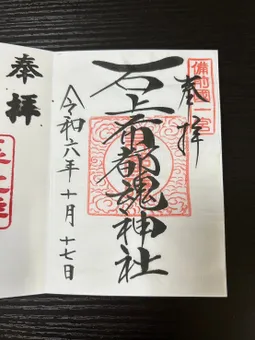 奉拝
備前國一宮
石上布都魂神社
令和六年十月十七日
奉拝